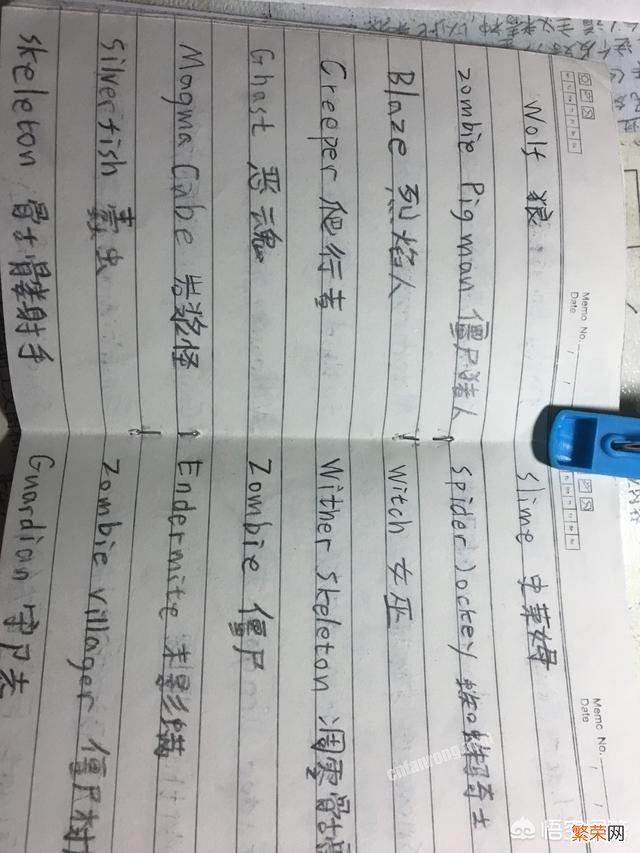 Memo No.
Date
Wolf 狼
Zombie Pigman 僵尸猪人
Blaze 烈焰人
Creeper 爬行者
Ghast 恶魂
Magma Cube 岩浆怪
Silverfish 蠹虫
Skeleton 骨骼射手
Memo No.
Date
Slime 史莱姆
Spider Jockey 蜘蛛骑士
Witch 女巫
Wither Skeleton 凋零骨
Zombie 僵尸
Endermite 末影螨
Zombie villager 僵尸村
Guardian 守卫者
cnfanrong.com
悟空问答
繁荣网